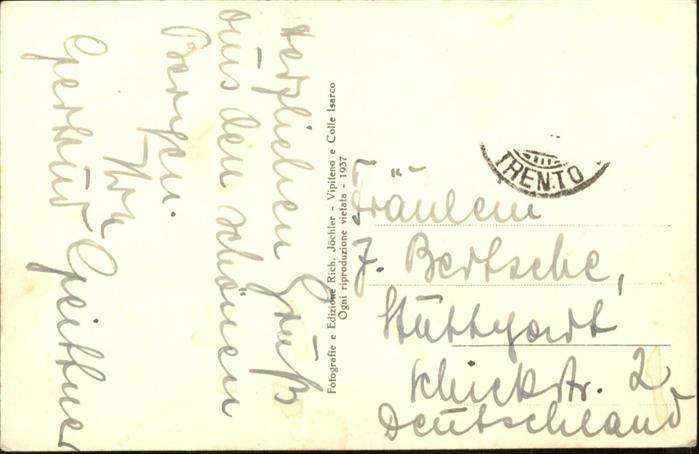 herzlichen Gruß
aus den schönen
Bergen.
Ihre
Gertrud
Fotografie e Edizione Rich. Jöchler - Vipiteno e Colle Isarco
Ogni riproduzione vietata - 1937
TRENTO
Fräulein
J. Bertsche,
Stuttgart
Schickstr. 2
Deutschland